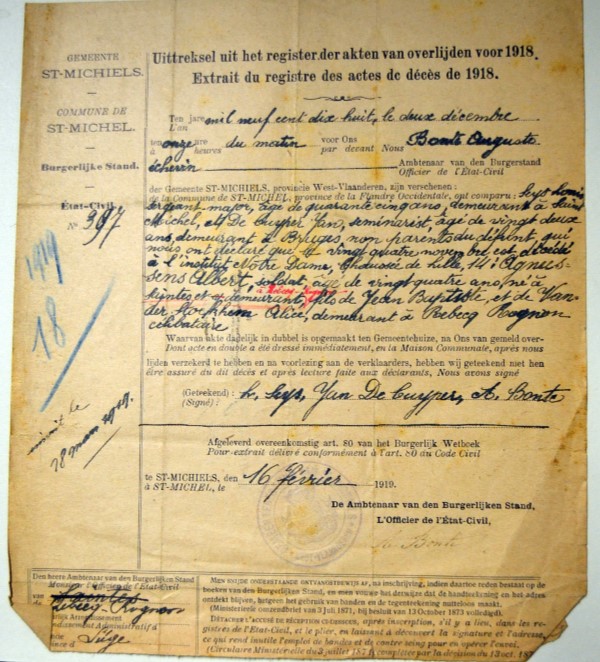 GEMEENTE
ST-MICHIELS.
COMMUNE DE
ST-MICHEL.
Burgerlijke Stand.
État-Civil
N° 397
1919
18
28 mars 1919.
Uittreksel uit het register der akten van overlijden voor 1918.
Extrait du registre des actes de décès de 1918.
Ten jare mil neuf cent dix huit, le deux décembre
L'an
ten onze ure du matin voor Ons Bonte Auguste
à heures par devant Nous
échevin Ambtenaar van den Burgerstand
Officier de l'État-Civil
der Gemeente ST-MICHIELS, provincie West-Vlaanderen, zijn verschenen :
de la Commune de ST-MICHEL, province de la Flandre Occidentale, ont comparu : Luys Louis
sergeant major, âgé de quarante cinq ans, demeurant à Saint
Michel, et De Cuyper Jan, seminarist, âgé de vingt deux
ans, demeurant à Bruges, non parents du défunt, qui
nous ont déclaré que le vingt quatre novembre est décédé
à l'institut Notre Dame, Chaussée de Lille, 14 : Agneus-
sens Albert, soldat, âgé de vingt quatre ans, né à
à Rebecq-Rognon
et y demeurant, fils de Jean Baptiste, et de Van-
der Alice, demeurant à Rebecq Rognon
célibataire
Waarvan akte dagelijk in dubbel is opgemaakt ten Gemeentehuize, na Ons van gemeld over-
Dont acte en double a été dressé immédiatement, en la Maison Communale, après nous
lijden verzekerd te hebben en na voorlezing aan de verklaarders, hebben wij geteekend met hen
être assuré du dit décès et après lecture faite aux déclarants, Nous avons signé
(Geteekend) : L. Luys, Jan De Cuyper, A. Bonte
(Signé) :
Afgeleverd overeenkomstig art. 80 van het Burgerlijk Wetboek
Pour extrait délivré conformément à l'art. 80 du Code Civil
te ST-MICHIELS, den 16 février 1919.
à ST-MICHEL, le
De Ambtenaar van den Burgerlijken Stand,
L'Officier de l'État-Civil,
Bonte
Den heere Ambtenaar van den Burgerlijken Stand
Monsieur l'Officier de l'État-Civil
Saintes
Rebecq-Rognon
Administratif d
MEN WIJZE ONDERSTAANDE ONTVANGSTBEWIJS AF, na inschrijving, indien daartoe reden bestaat op de
boeken van den Burgerlijken Stand, en men vouwe het derwijze dat de handteekening en het adres
ontdekt blijven, hetgeen het gebruik van banden en de tegenteekening nutteloos maakt.
(Ministerieele omzendbrief van 3 Juli 1871, bij besluit van 13 October 1873 volledigd).
DÉTACHER L'ACCUSÉ DE RÉCEPTION CI-DESSOUS, après inscription, s'il y a lieu, dans les re-
gistres de l'État-Civil, et le plier, en laissant à découvert la signature et l'adresse,
ce qui rend inutile l'emploi de bandes et de contre-seing pour en opérer l'envoi.
(Circulaire Ministérielle du 3 juillet 1871 complétée par la décision du 13 oct. 187